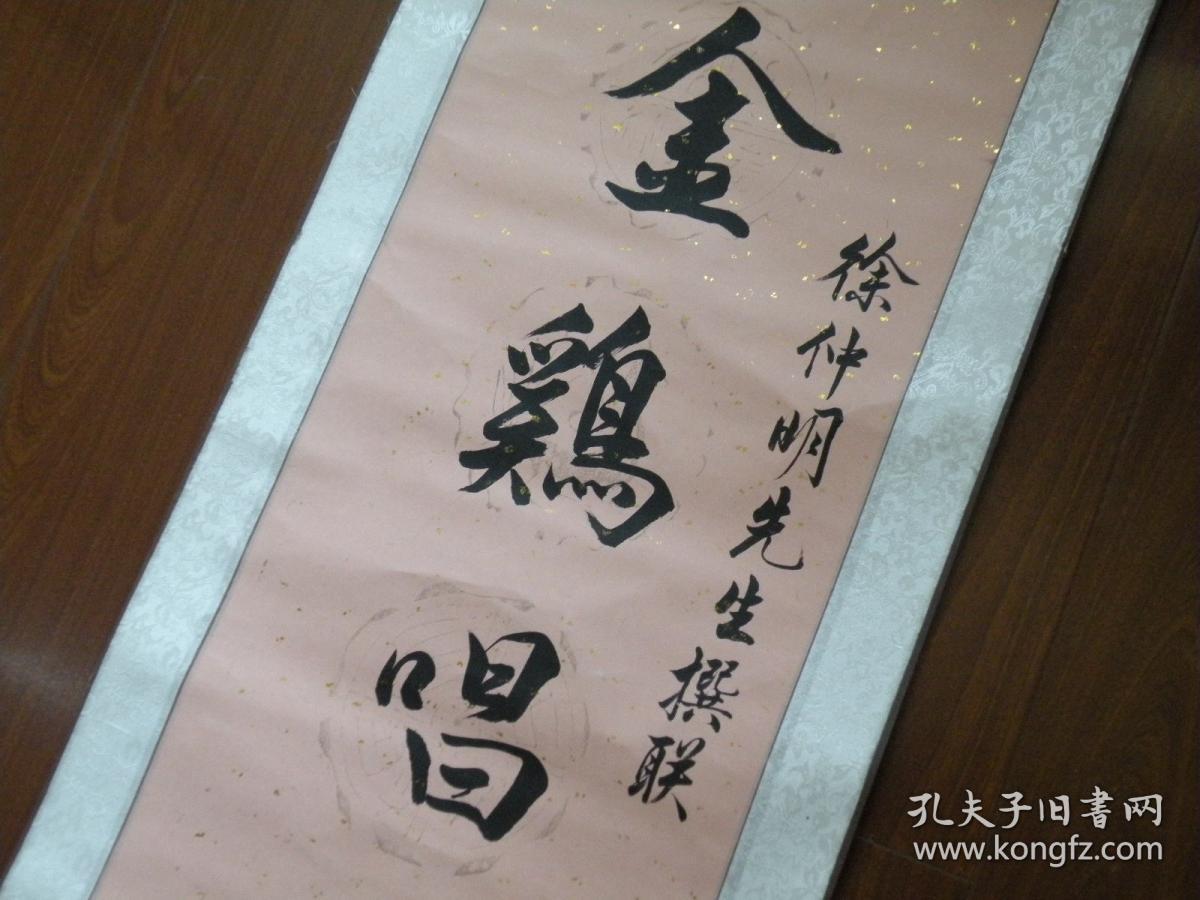 金鷄唱
徐仲明先生撰联
孔夫子旧書网
www.kongfz.com